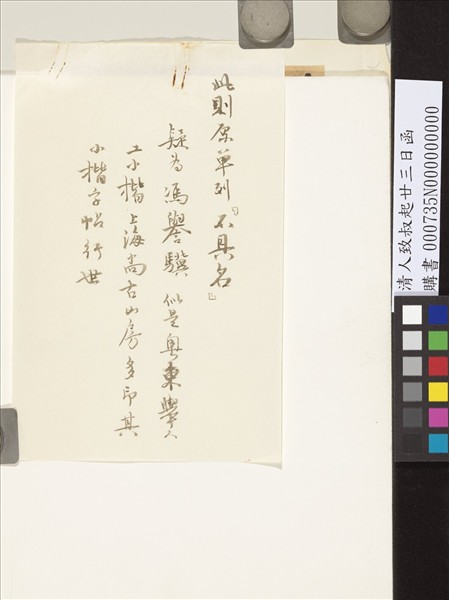 此則原單列「不具名」
疑為馮譽驥 似是粵東舉人
工小楷 上海尚古山房多印其
小楷字帖行世
清人致叔起廿三日函
購書 000735N000000000